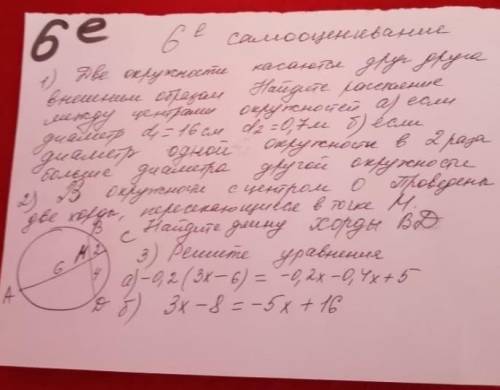 6е
6е самооценивание
1) Две окружности касаются друг друга
внешним образом Найдите расстояние
между центрами окружностей а) если
диаметр d1 = 16 см d2 = 0,7м б) если
диаметр одной окружности в 2 раза
больше диаметра другой окружности
2) В окружности с центром О Проведены
две хорды, пересекающиеся в точке М.
Найдите длину хорды BD
B
C
M
2
6
4
A
D
3) Решите уравнения
а) -0,2 (3x-6) = -0,2x-0,4x+5
б) 3x-8 = -5x+16